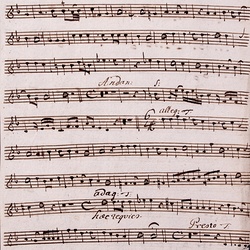 Andan. S:
allegro
adag.
haec requies.
Presto